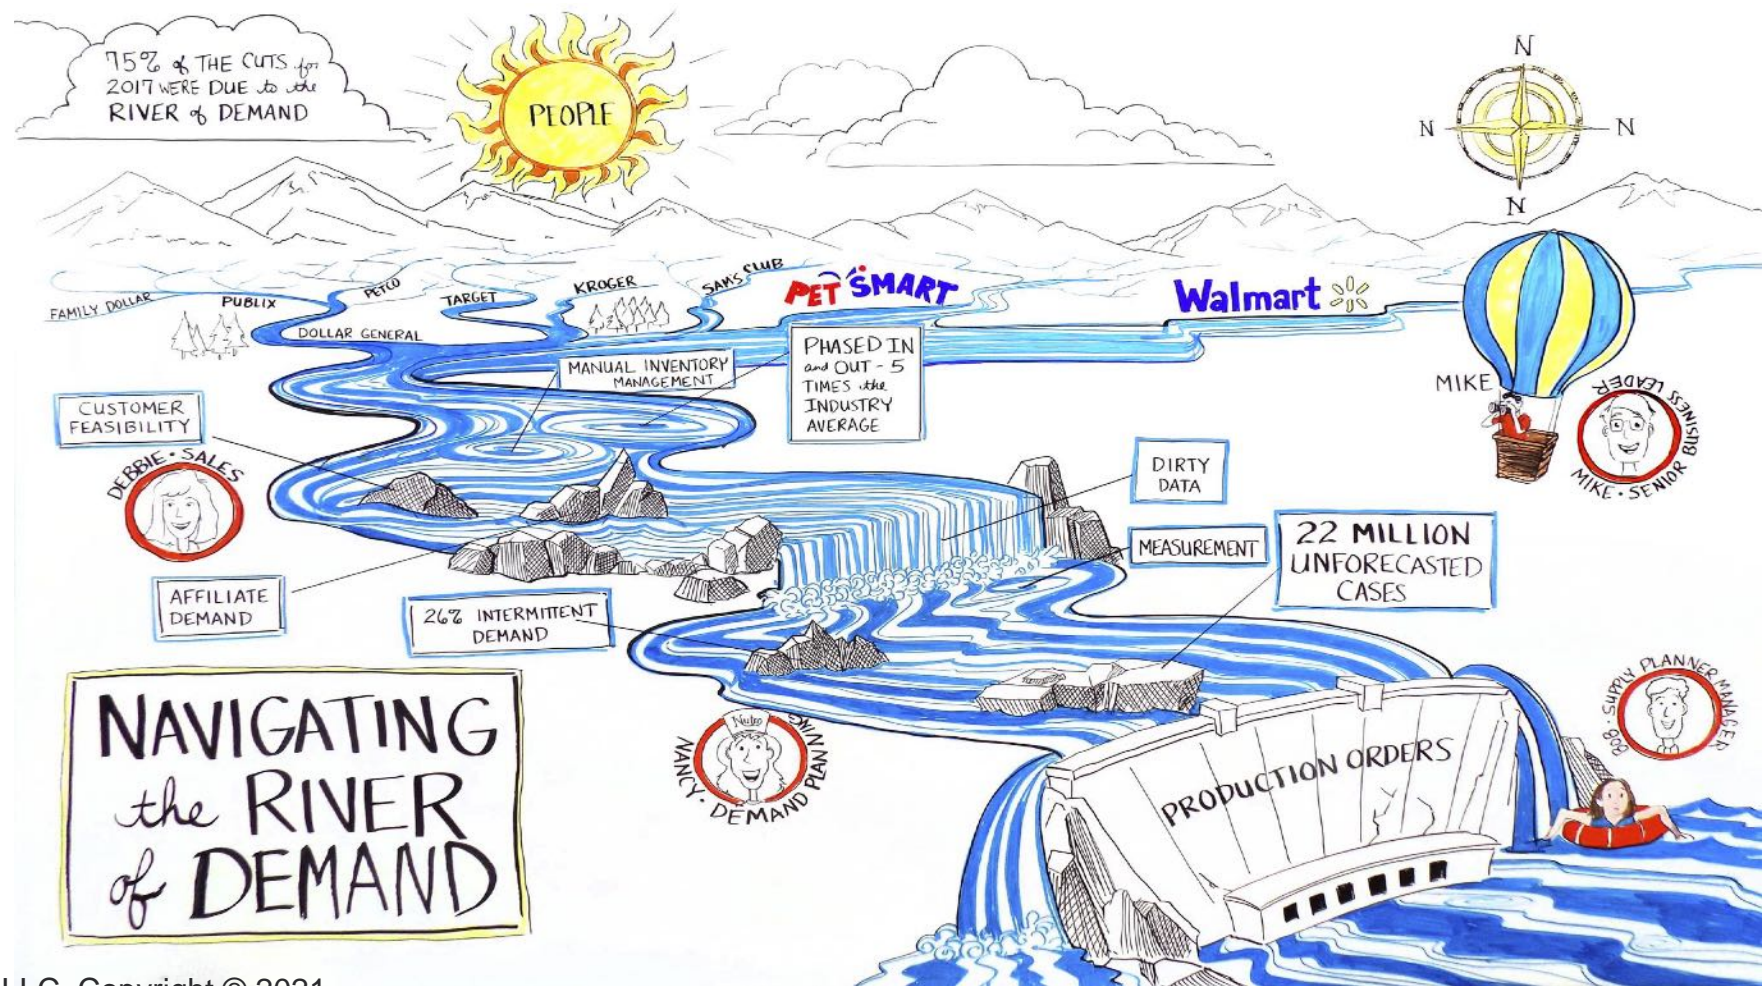 75% of THE CUTS for
2017 WERE DUE to the
RIVER of DEMAND
PEOPLE
N
N
N
N
FAMILY DOLLAR
PUBLIX
PETCO
TARGET
KROGER
SAM'S CLUB
PETSMART
Walmart
DOLLAR GENERAL
MANUAL INVENTORY
MANAGEMENT
PHASED IN
and OUT - 5
TIMES the
INDUSTRY
AVERAGE
MIKE
MIKE • SENIOR BUSINESS LEADER
CUSTOMER
FEASIBILITY
DEBBIE • SALES
DIRTY
DATA
MEASUREMENT
22 MILLION
UNFORECASTED
CASES
AFFILIATE
DEMAND
26% INTERMITTENT
DEMAND
NAVIGATING
the RIVER
of DEMAND
NANCY • DEMAND PLANNING
BOB • SUPPLY PLANNER MANAGER
PRODUCTION ORDERS
LLC. Copyright © 2021